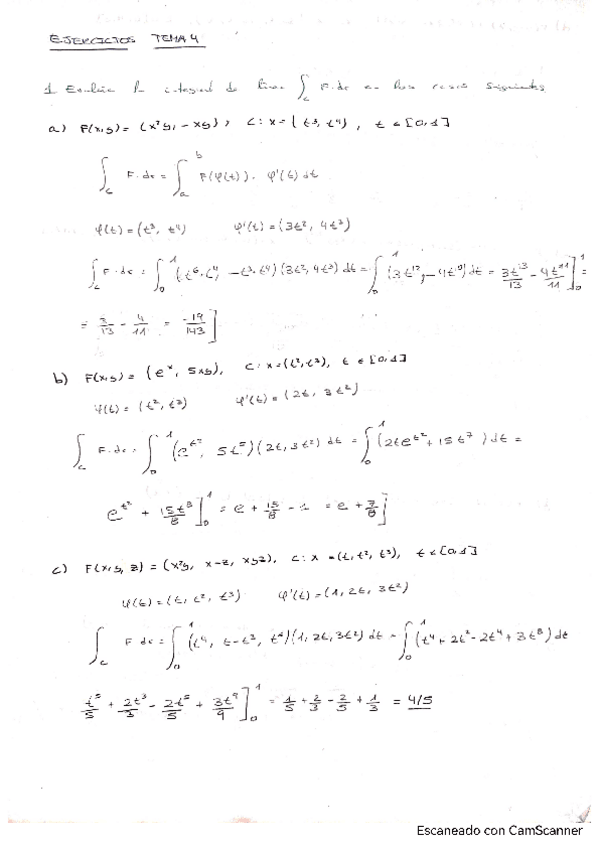 EJERCICIOS TEMA 4
1. Evalúa la integral de línea ∫_C F·dc en los casos siguientes
a) F(x,y) = (x²y, -xy), C: x = (t³, t⁴), t ∈ [0,1]
∫_C F·dc = ∫_a^b F(φ(t))·φ'(t) dt
φ(t) = (t³, t⁴) φ'(t) = (3t², 4t³)
∫_C F·dc = ∫_0^1 (t⁶·t⁴, -t³·t⁴)(3t², 4t³) dt = ∫_0^1 (3t¹², -4t¹⁰) dt = 3t¹³/13 - 4t¹¹/11 ]_0^1 =
= 3/13 - 4/11 = -19/143 ]
b) F(x,y) = (eˣ, 5xy), C: x = (t², t³), t ∈ [0,1]
φ(t) = (t², t³) φ'(t) = (2t, 3t²)
∫_C F·dc = ∫_0^1 (e^t², 5t⁵)(2t, 3t²) dt = ∫_0^1 (2te^t² + 15t⁷) dt =
e^t² + 15t⁸/8 ]_0^1 = e + 15/8 - 1 = e + 7/8 ]
c) F(x,y,z) = (x²y, x-z, xyz), C: x = (t, t², t³), t ∈ [0,1]
φ(t) = (t, t², t³) φ'(t) = (1, 2t, 3t²)
∫_C F·dc = ∫_0^1 (t⁴, t-t³, t⁶)(1, 2t, 3t²) dt = ∫_0^1 (t⁴ + 2t² - 2t⁴ + 3t⁸) dt
t⁵/5 + 2t³/3 - 2t⁵/5 + 3t⁹/9 ]_0^1 = 1/5 + 2/3 - 2/5 + 1/3 = 4/5
Escaneado con CamScanner